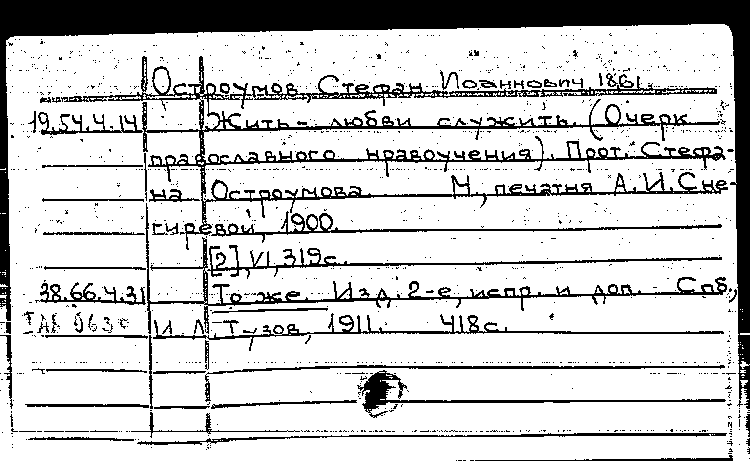 Остроумов, Стефан Иоаннович, 1861.
19.54.4.14 Жить - любви служить. (Очерк
православного нравоучения). Прот. Стефа-
на Остроумова. М., печатня А.И.Сне-
гиревой, 1900.
[2], VI, 319с.
38.66.4.31 То же. Изд. 2-е, испр. и доп. Спб.,
И. Л. Тузов, 1911. 418с.